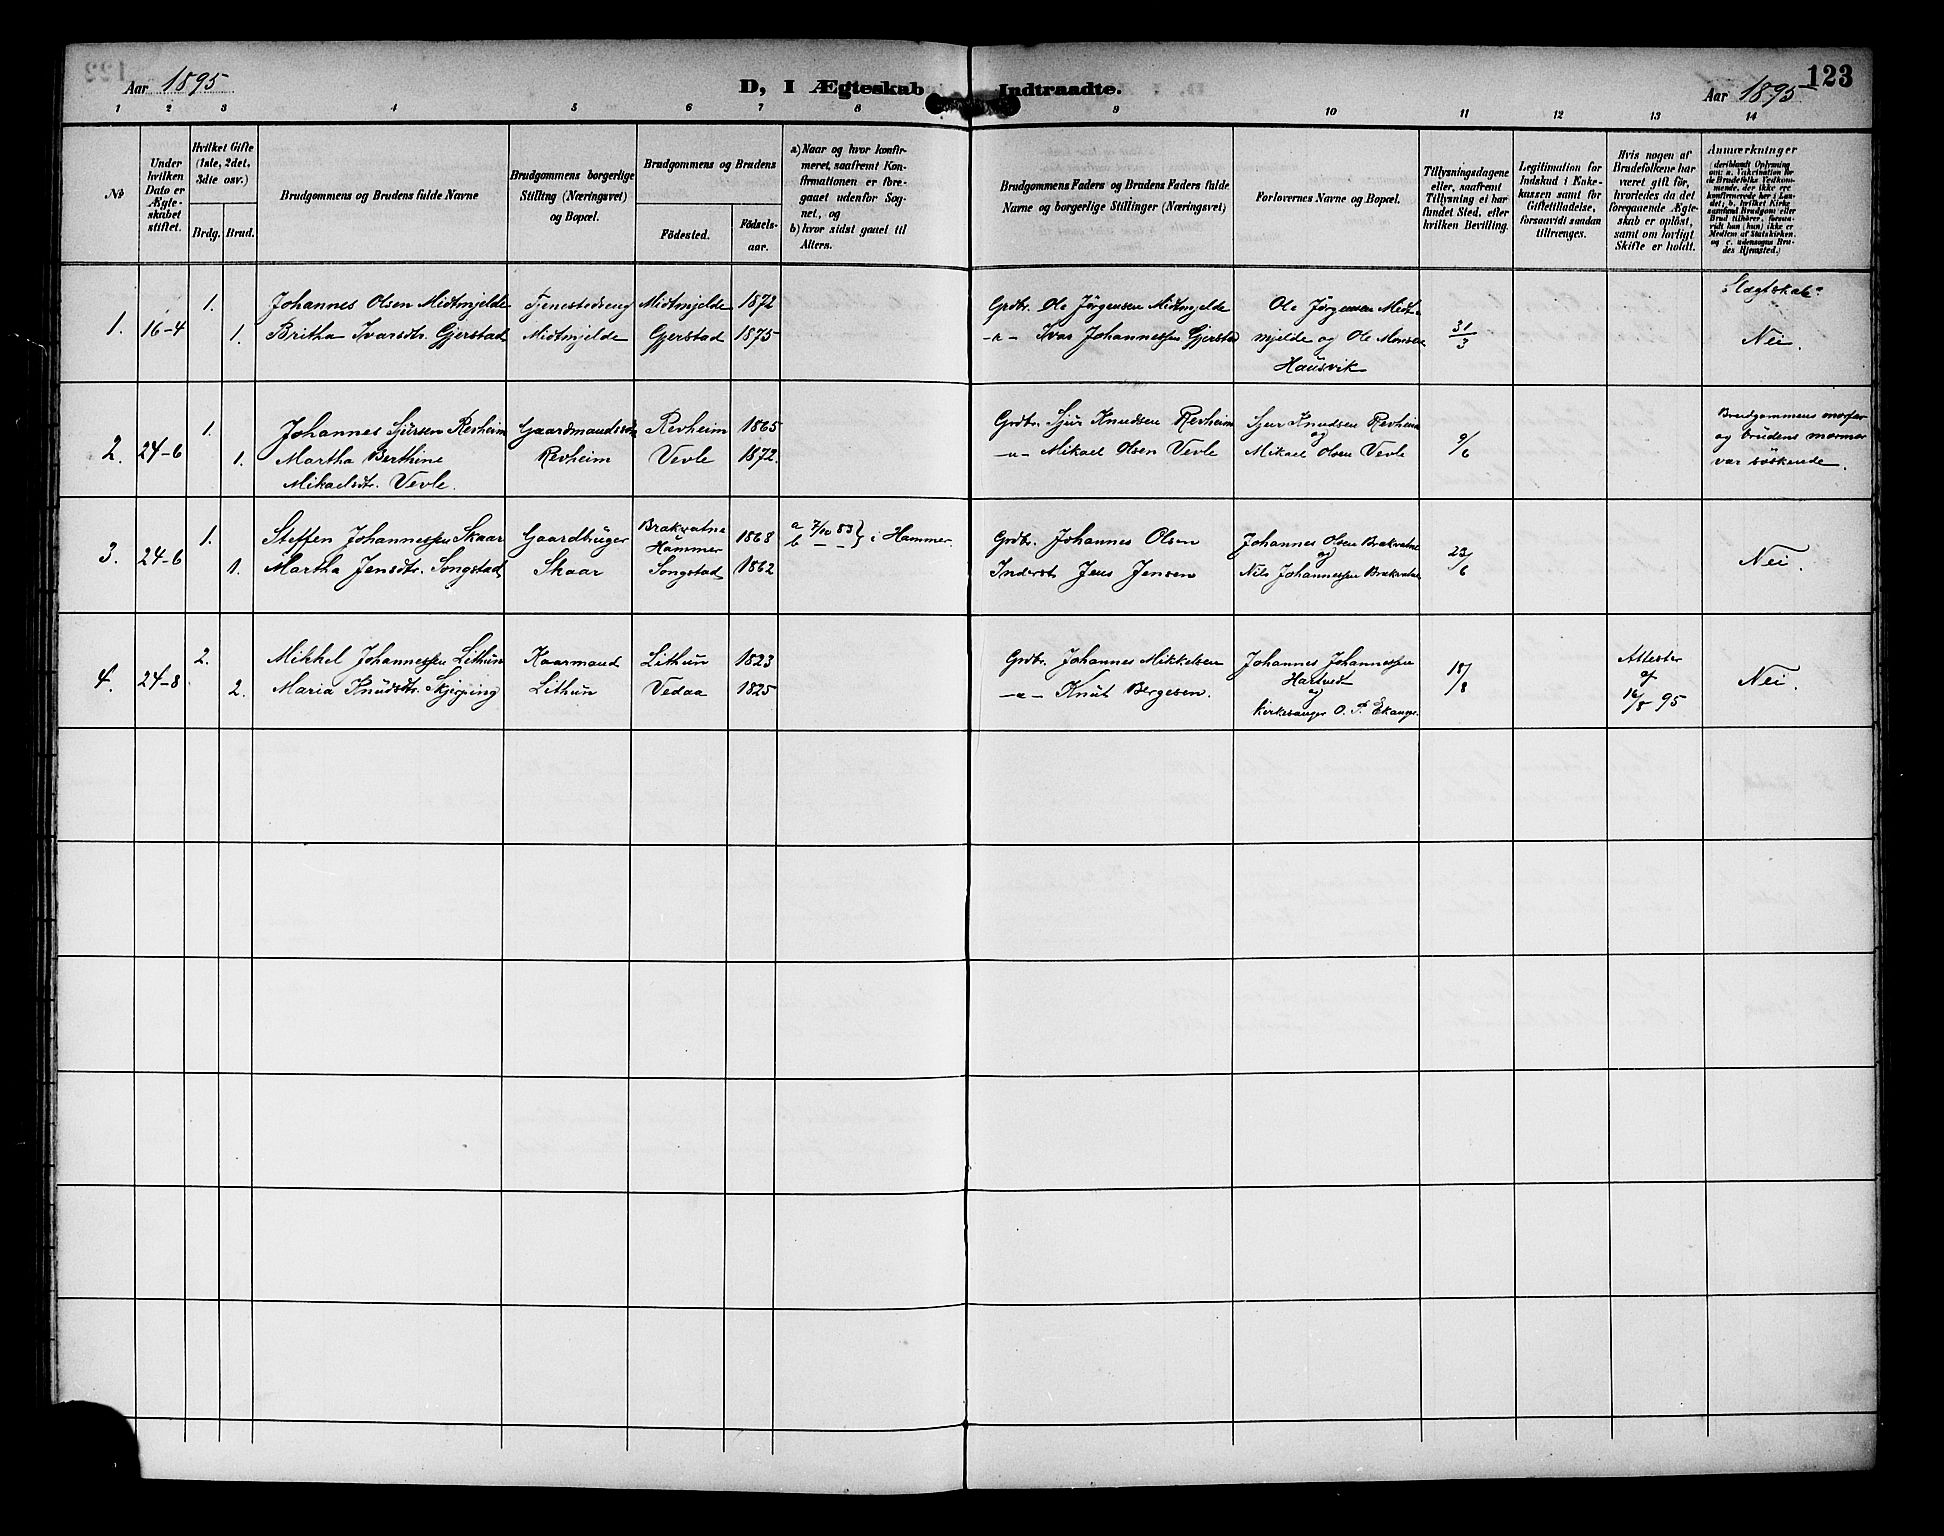 Aar 1895
D, I Ægteskab Indtraadte.
Aar 1895
123
1 2 3 4 5 6 7 8 9 10 11 12 13 14
№
Under
hvilken
Dato er
Ægte-
skabet
stiftet.
Hvilket Gifte
(1ste, 2det,
3die osv.)
Brdg. Brud.
Brudgommens og Brudens fulde Navne
Brudgommens borgerlige
Stilling (Næringsvei)
og Bopæl.
Brudgommens og Brudens
Födested.
Födsels-
aar.
a) Naar og hvor konfir-
meret, saafremt Kon-
firmationen er fore-
gaaet udenfor Sog-
net, og
b) hvor sidst gaaet til
Alters.
Brudgommens Faders og Brudens Faders fulde
Navne og borgerlige Stillinger (Næringsvei)
Forlovernes Navne og Bopæl.
Tillysningsdagene
eller, saafremt
Tillysning ei har
fundet Sted, efter
hvilken Bevilling.
Legitimation for
Indskud i Enke-
kassen samt for
Giftetilladelse,
forsaavidt saadan
tiltrænges.
Hvis nogen af
Brudefolkene har
været gift för,
hvorledes da det
foregaaende Ægte-
skab er oplöst,
samt om lovligt
Skifte er holdt.
Anmærkninger
(deriblandt Oplysning
om: a. Vakcination for
de Brudefolks Vedkom-
mende, der ikke ere
konfirmerede her i Lan-
det, b. hvilket Kirke-
samfund Brudgom eller
Brud tilhörer, forsaa-
vidt han (hun) ikke er
Medlem af Statskirken,
og c. udensogns Bru-
des Hjemsted.)
1. 16-4 1. 1.
Johannes Olsen Midtmjelde
Britha Ivarsdtr. Gjerstad
Tjenestedreng
Midtmjelde
Midtmjelde 1872
Gjerstad 1875
Grdbr. Ole Jörgensen Midtmjelde
-"- Ivar Johannessen Gjerstad
Ole Jörgensen Midt-
mjelde og Ole Monsen
Hausvik
31/3
Slægtskab?
Nei.
2. 24-6 1. 1.
Johannes Sjursen Revheim
Martha Berthine
Mikaelsdtr. Vevle.
Gaardmandssön
Revheim
Revheim 1865
Vevle 1872.
Grdbr. Sjur Knudsen Revheim
-"- Mikael Olsen Vevle
Sjur Knudsen Revheim
og
Mikael Olsen Vevle
9/6
Brudgommens morfar
og brudens mormor
var söskende.
3. 24-6 1. 1.
Steffen Johannessen Skaar
Martha Jensdtr. Songstad
Gaardbruger
Skaar
Brakvatne
Hammer 1868
Songstad 1862
a 7/10 83
b — — } i Hammer.
Grdbr. Johannes Olsen
Inderst Jens Jensen
Johannes Olsen Brakvatne
og
Nils Johannessen Brakvatne
23/6
Nei.
4. 24-8 2. 2.
Mikkel Johannessen Lithun
Maria Knudsdtr. Skjerping
Kaarmand
Lithun
Lithun 1823
Vedaa 1825
Grdbr. Johannes Mikkelsen
-"- Knut Bergesen.
Johannes Johannessen
Hartvedt
og
Kirkesanger O. P. Ekanger.
18/8
Attester
af
16/8 95
Nei.